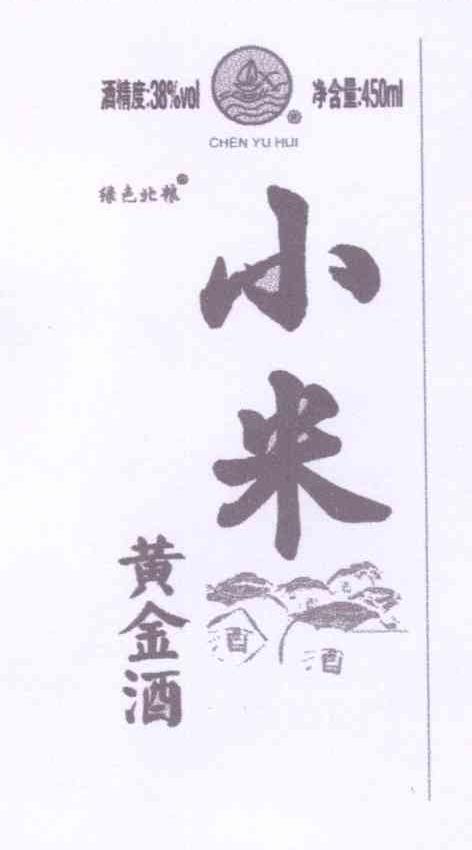 酒精度:38%vol
净含量:450ml
®
CHEN YU HUI
绿色北粮®
小米
黄金酒
酒
酒